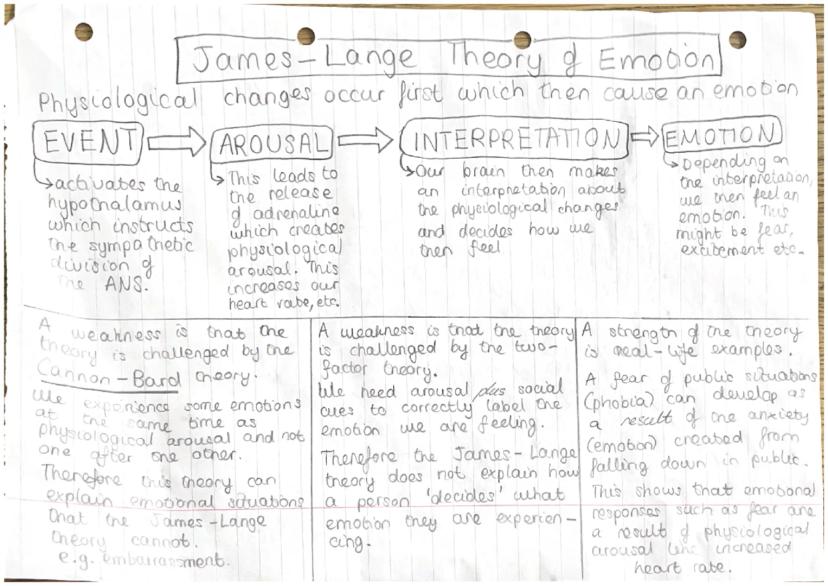 James-Lange Theory of Emotion
Physiological changes occur first which then cause an emotion
EVENT
activates the
hypothalamus
which instructs
the sympathetic
division of
the ANS.
AROUSAL
This leads to
the release
of adrenaline
which creates
physiological
arousal. This
increases our
heart rate, etc.
INTERPRETATION
Our brain then makes
an interpretation about
the physiological changes
and decides how we
then feel
EMOTION
Depending on
the interpretation,
we then feel an
emotion. This
might be fear,
excitement etc.
A weakness is that the
theory is challenged by the
Cannon-Bard theory.
We experience some emotions
at the same time as
physiological arousal and not
one after one other.
Therefore this theory can
explain emotional situations
that the James-Lange
theory cannot.
e.g. embarrassment.
A weakness is that the theory
is challenged by the two-
factor theory.
We need arousal plus social
cues to correctly label the
emotion we are feeling.
Therefore the James-Lange
theory does not explain how
a person 'decides' what
emotion they are experien-
cing.
A strength of the theory
is real-life examples.
A fear of public situations
(phobia) can develop as
a result of the anxiety
(emotion) created from
falling down in public.
This shows that emotional
responses such as fear are
a result of physiological
arousal like increased
heart rate.